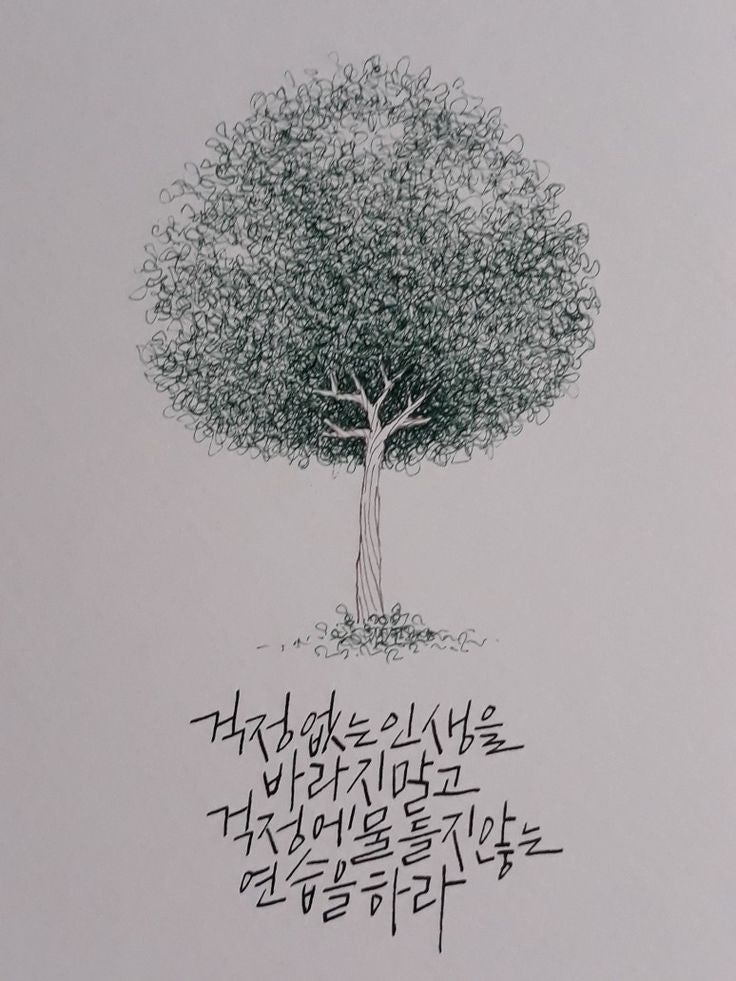 걱정없는인생을
바라지말고
걱정에물들지않는
연습을하라